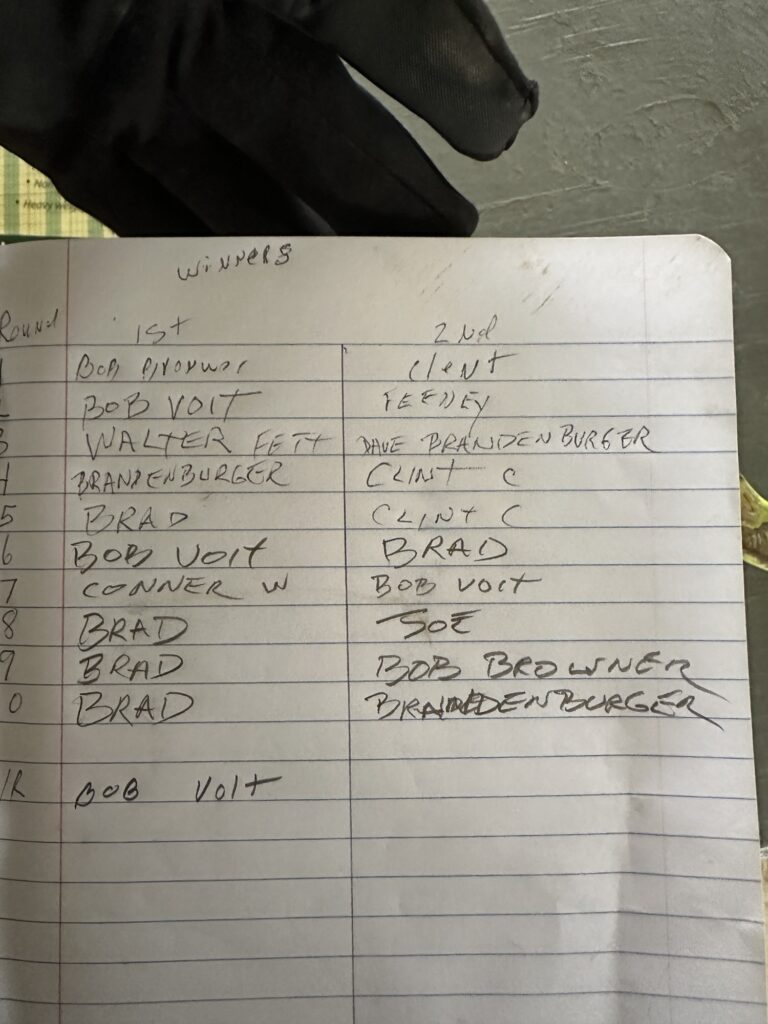 • Heavy
WINNERS
Round 1st 2nd
1 BOB Clent
2 BOB VOIT FEENEY
3 WALTER FETT DAVE BRANDENBURGER
4 BRANDENBURGER CLINT C
5 BRAD CLINT C
6 BOB VOIT BRAD
7 CONNER W BOB VOIT
8 BRAD JOE
9 BRAD BOB BROWNER
0 BRAD BRANDENBURGER
1R BOB VOIT